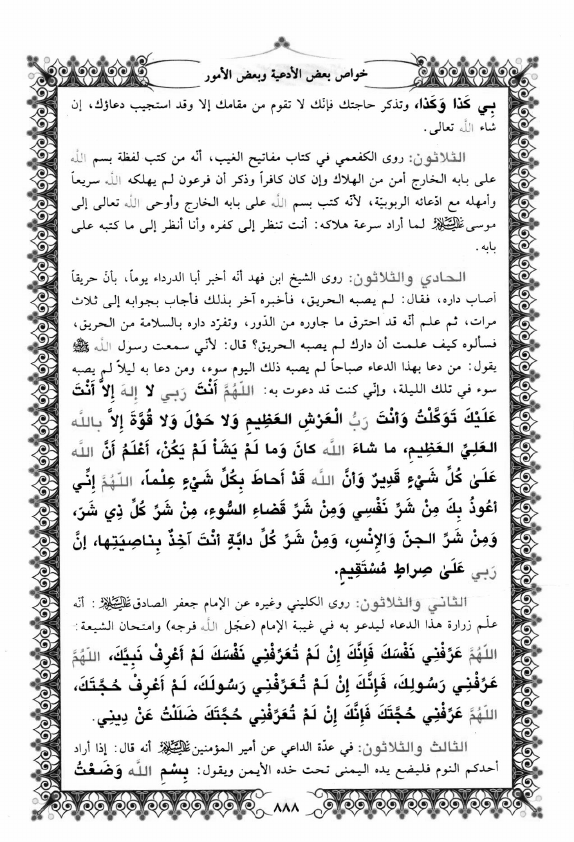 خواص بعض الأدعية وبعض الأمور
بِي كَذا وَكَذا، وتذكر حاجتك فإنّك لا تقوم من مقامك إلا وقد استجيب دعاؤك، إن
شاء الله تعالى.
الثلاثون: روى الكفعمي في كتاب مفاتيح الغيب، أنّه من كتب لفظة بسم الله
على بابه الخارج أمن من الهلاك وإن كان كافراً وذكر أن فرعون لم يهلكه الله سريعاً
وأمهله مع ادّعائه الربوبيّة، لأنّه كتب بسم الله على بابه الخارج وأوحى الله تعالى إلى
موسى عليه السلام لما أراد سرعة هلاكه: أنت تنظر إلى كفره وأنا أنظر إلى ما كتبه على
بابه.
الحادي والثلاثون: روى الشيخ ابن فهد أنّه أخبر أبا الدرداء يوماً، بأنّ حريقاً
أصاب داره، فقال: لم يصبه الحريق، فأخبره آخر بذلك فأجاب بجوابه إلى ثلاث
مرات، ثم علم أنّه قد احترق ما جاوره من الدّور، وتفرّد داره بالسلامة من الحريق،
فسألوه كيف علمت أن دارك لم يصبه الحريق؟ قال: لأنّي سمعت رسول الله ﷺ
يقول: من دعا بهذا الدعاء صباحاً لم يصبه ذلك اليوم سوء، ومن دعا به ليلاً لم يصبه
سوء في تلك الليلة، وإنّي كنت قد دعوت به: اللهُمَّ أَنْتَ رَبِي لا إِلهَ إِلاَّ أَنْتَ
عَلَيْكَ تَوَكَّلْتُ وَأَنْتَ رَبُّ الْعَرْشِ العَظِيمِ وَلا حَوْلَ وَلا قُوَّةَ إِلاَّ بِالله
العَلِيِّ العَظِيمِ، ما شاءَ الله كانَ وَما لَمْ يَشَأْ لَمْ يَكُنْ، أَعْلَمُ أَنَّ الله
عَلَىٰ كُلِّ شَيْءٍ قَدِيرٌ وَأَنَّ الله قَدْ أَحاطَ بِكُلِّ شَيْءٍ عِلْماً، اللهُمَّ إِنِّي
أَعُوذُ بِكَ مِنْ شَرِّ نَفْسِي وَمِنْ شَرِّ قَضاءِ السُّوءِ، مِنْ شَرِّ كُلِّ ذِي شَرّ،
وَمِنْ شَرِّ الجنّ وَالإِنْسِ، وَمِنْ شَرِّ كُلِّ دابَّةٍ أَنْتَ آخِذٌ بِناصِيَتِها، إِنَّ
رَبِي عَلَىٰ صِراطٍ مُسْتَقِيمٍ.
الثاني والثلاثون: روى الكليني وغيره عن الإمام جعفر الصادق عليه السلام : أنّه
علّم زرارة هذا الدعاء ليدعو به في غيبة الإمام (عجّل الله فرجه) وامتحان الشيعة:
اللهُمَّ عَرِّفْنِي نَفْسَكَ فَإِنَّكَ إِنْ لَمْ تُعَرِّفْنِي نَفْسَكَ لَمْ أَعْرِفْ نَبِيَّكَ، اللهُمَّ
عَرِّفْنِي رَسُولَكَ، فَإِنَّكَ إِنْ لَمْ تُعَرِّفْنِي رَسُولَكَ، لَمْ أَعْرِفْ حُجَّتَكَ،
اللهُمَّ عَرِّفْنِي حُجَّتَكَ فَإِنَّكَ إِنْ لَمْ تُعَرِّفْنِي حُجَّتَكَ ضَلَلْتُ عَنْ دِينِي.
الثالث والثلاثون: في عدّة الداعي عن أمير المؤمنين عليه السلام أنه قال: إذا أراد
أحدكم النوم فليضع يده اليمنى تحت خده الأيمن ويقول: بِسْمِ الله وَضَعْتُ
٨٨٨